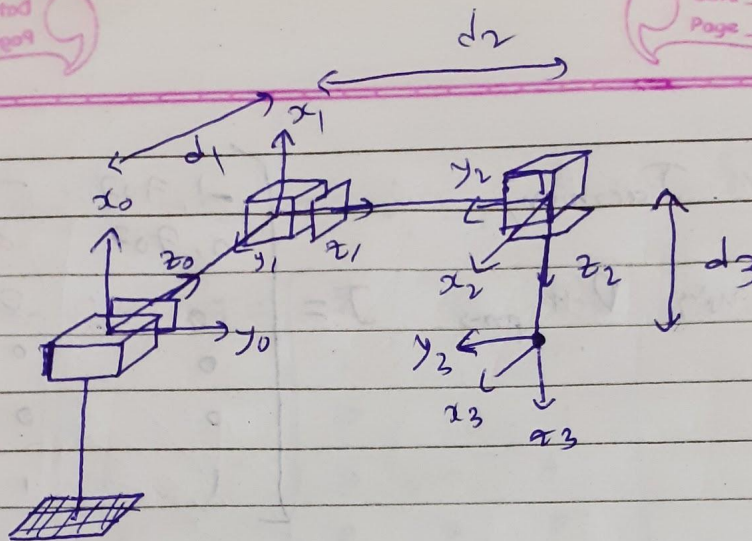 Page
d2
x1
d1
x0
y2
z0
y1
z1
x2
z2
d3
y0
y3
x3
z3
J =